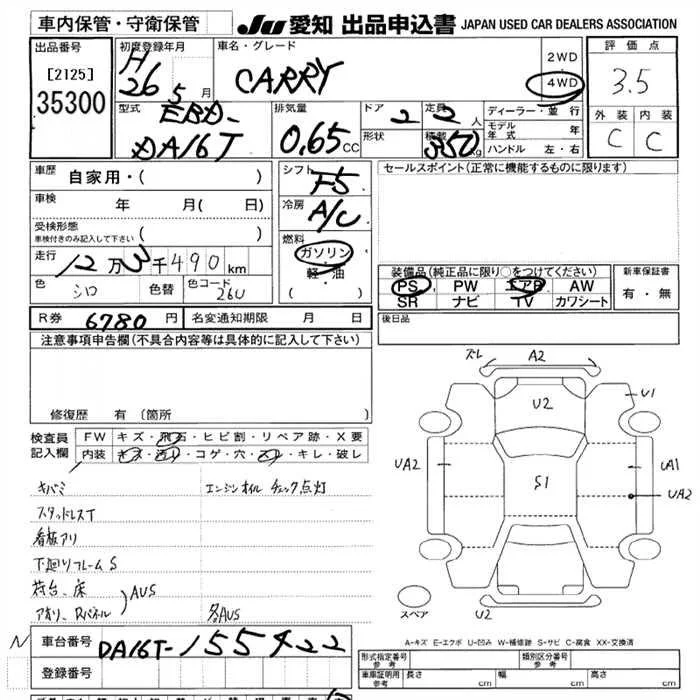 車内保管・守衛保管 JU 愛知 出品申込書 JAPAN USED CAR DEALERS ASSOCIATION
出品番号 初度登録年月 車名・グレード 2WD 評価点
[2125] H 26 5月 CARRY 4WD 3.5
35300 外装 内装
型式 排気量 ドア 定員 ディーラー・並行
EBD- 2 2人 モデル年式 年 C C
DA16T 0.65 CC 形状 積載 350kg ハンドル 左・右
車歴 自家用・( ) シフト F5 セールスポイント(正常に機能するものに限ります)
車検 年 月( 日) 冷房 A/C
受検形態
車検付きのみ記入して下さい ( ) 燃料
走行 12万3千490km ガソリン
軽・油 装備品(純正品に限り○をつけてください) 新車保証書
色 シロ 色替 色コード 26U ( ) PS PW エアB AW 有・無
SR ナビ TV カワシート
R券 6780円 名変通知期限 月 日 後日品
注意事項申告欄(不具合内容等は具体的に記入して下さい)
ズレ A2
U2 U1
修復歴 有(箇所
検査員 FW キズ・飛石・ヒビ割・リペア跡・X要
記入欄 内装 キズ・汚り・コゲ・穴・スレ・キレ・破レ
UA2 S1 UA1
UA2
キバミ エンジンオイル チェック点灯
スタッドレスT
看板アリ
下廻りフレームS
荷台、床 AUS
アオリ、Rパネル 多AUS
スペア U2
A-キズ E-エクボ U-凹み W-補修跡 S-サビ C-腐食 XX-交換済
N 車台番号 DA16T-155422
登録番号
形式指定番号 参考 類別区分番号 参考
車庫証明用 参考 長さ cm 幅 cm 高さ cm